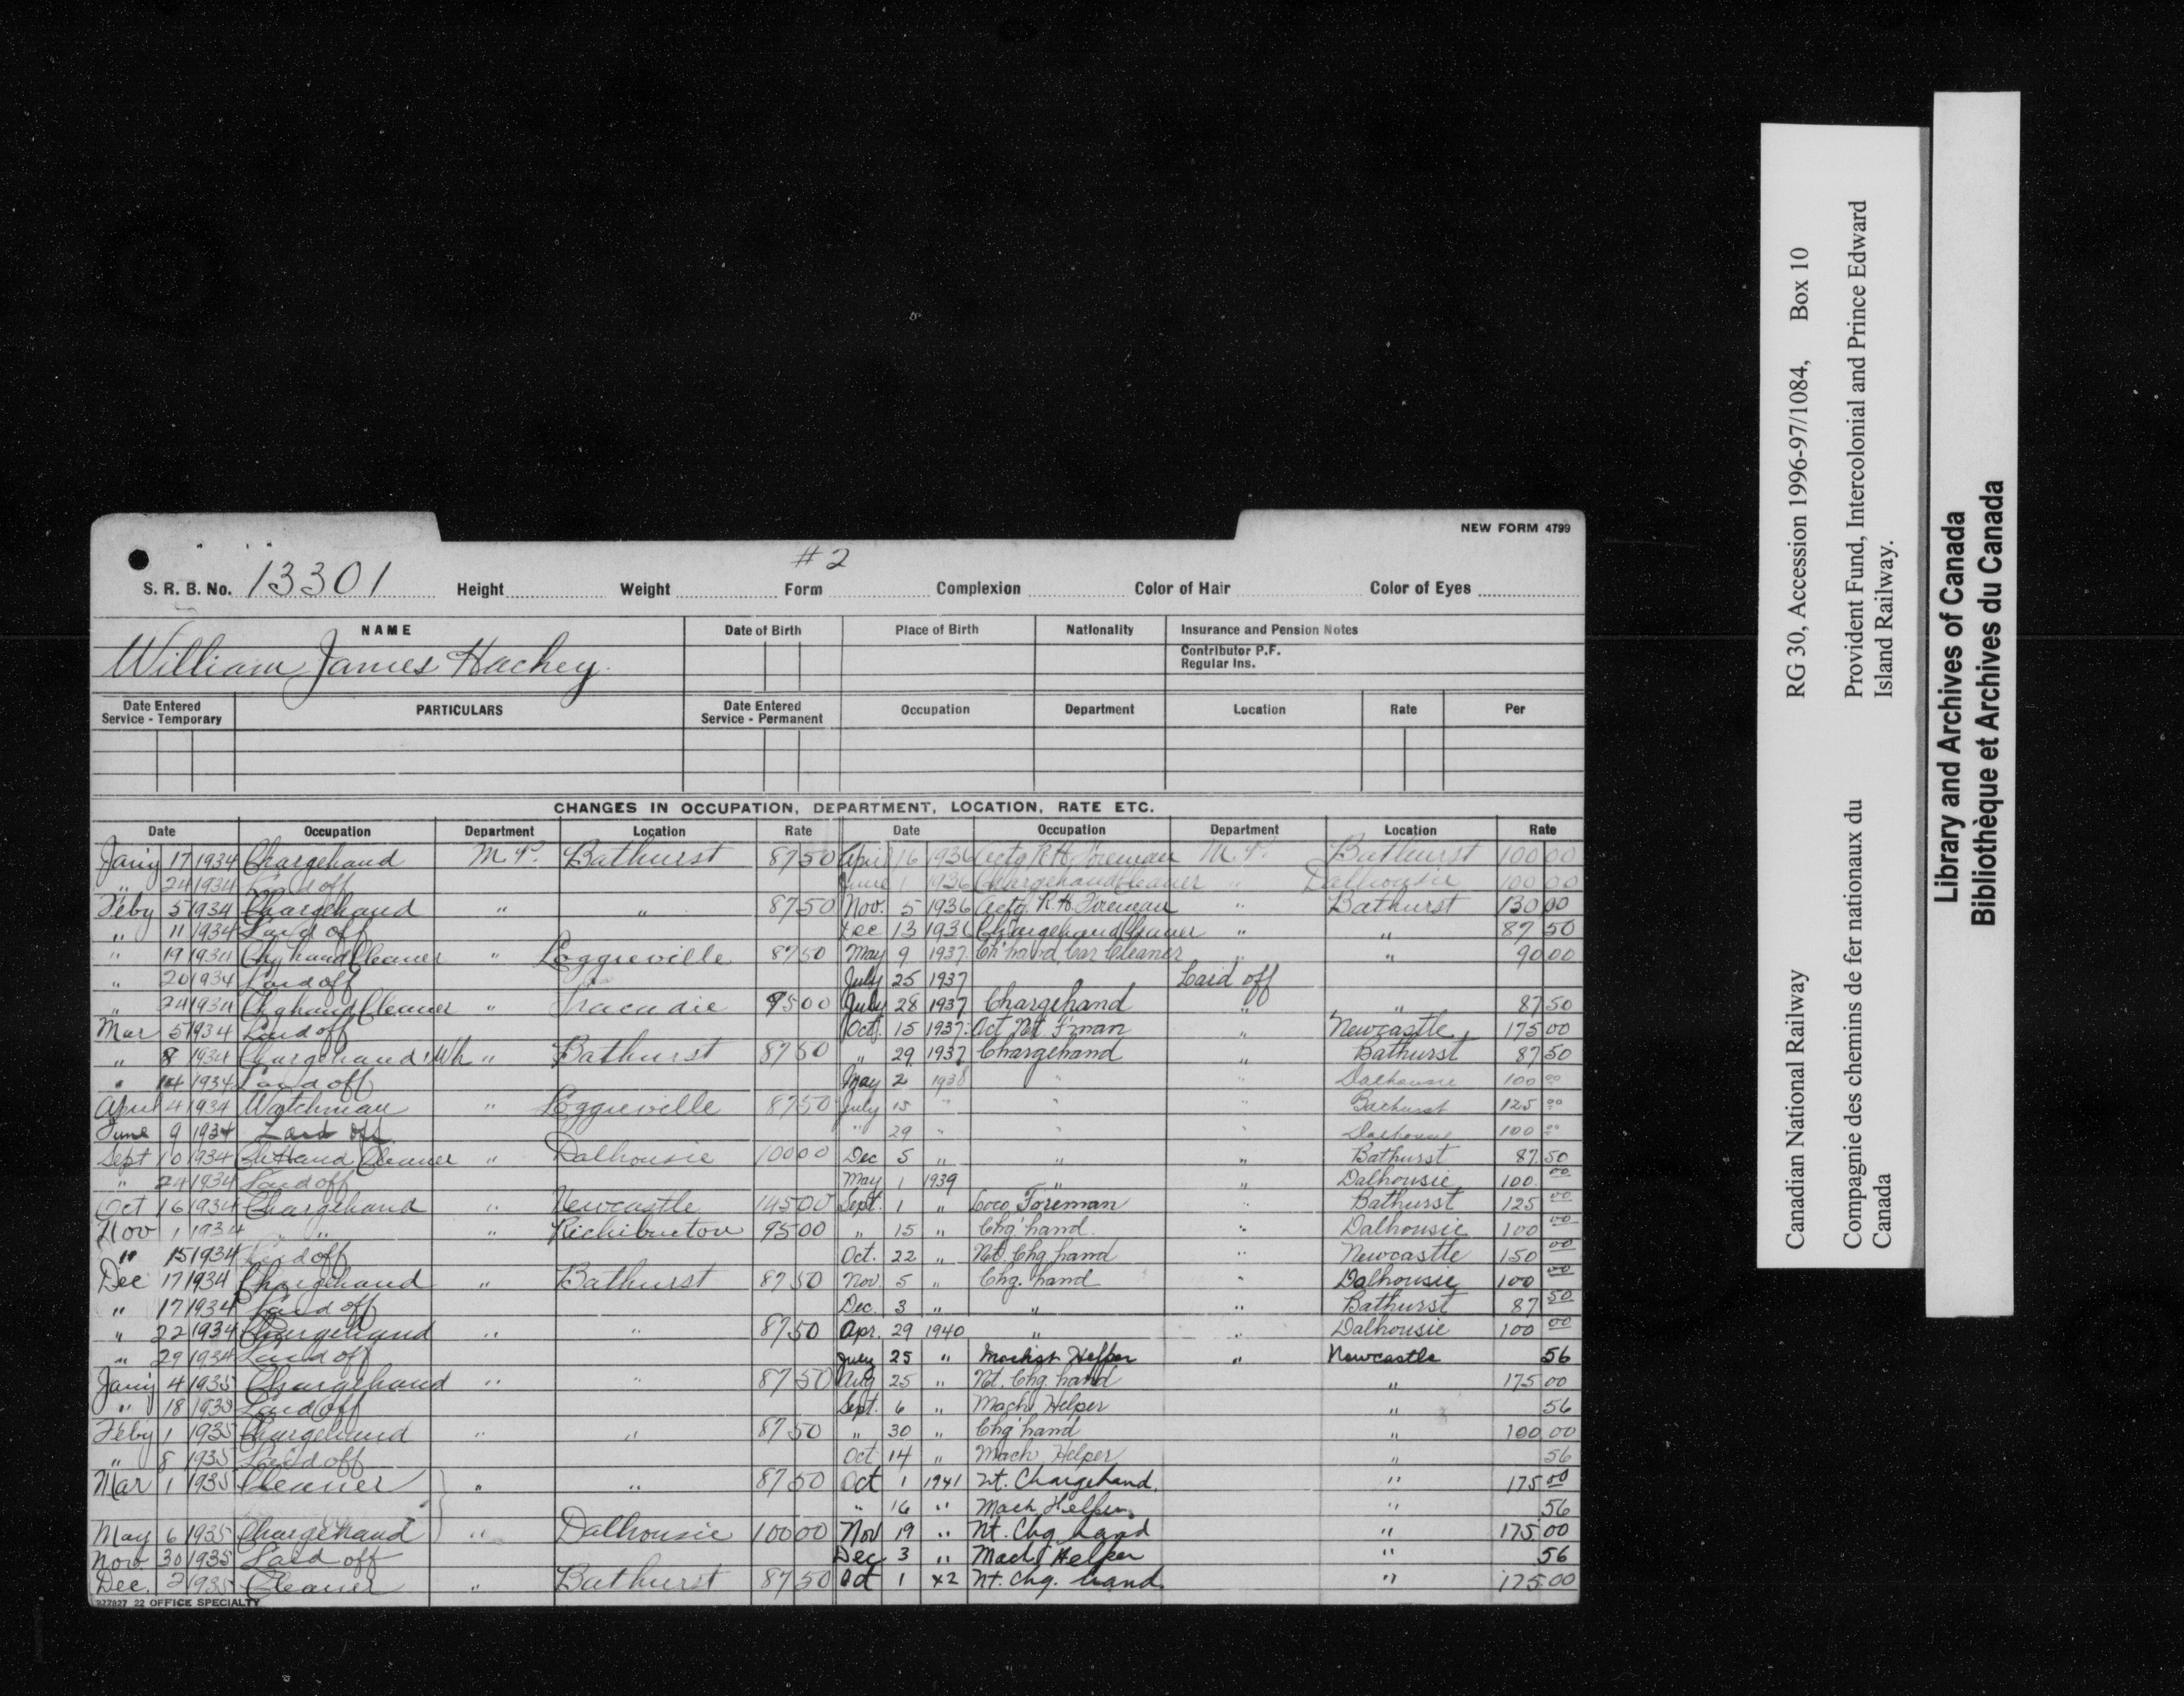 NEW FORM 4799
#2
S. R. B. No. 13301 Height Weight Form Complexion Color of Hair Color of Eyes
NAME Date of Birth Place of Birth Nationality Insurance and Pension Notes
Contributor P.F.
Regular Ins.
William James Hachey.
Date Entered Service - Temporary PARTICULARS Date Entered Service - Permanent Occupation Department Location Rate Per
CHANGES IN OCCUPATION, DEPARTMENT, LOCATION, RATE ETC.
Date Occupation Department Location Rate Date Occupation Department Location Rate
Jany 17 1934 Chargehand M.P. Bathurst 87 50
" 24 1934 Laid off
Feby 5 1934 Chargehand " " 87 50
" 11 1934 Laid off
" 19 1934 Chghand Cleaner " Loggieville 87 50
" 20 1934 Laid off
" 24 1934 Chghand Cleaner " Tracadie 95 00
Mar 5 1934 Laid off
" 8 1934 Chargehand Wh " Bathurst 87 50
" 14 1934 Laid off
April 4 1934 Watchman " Loggieville 87 50
June 9 1934 Laid off
Sept 10 1934 Ch Hand Cleaner " Dalhousie 100 00
" 24 1934 Laid off
Oct 16 1934 Chargehand " Newcastle 145 00
Nov 1 1934 " " " Richibucton 95 00
" 15 1934 Laid off
Dec 17 1934 Chargehand " Bathurst 87 50
" 17 1934 Laid off
" 22 1934 Chargehand " " 87 50
" 29 1934 Laid off
Jany 4 1935 Chargehand " " 87 50
" 18 1935 Laid off
Feby 1 1935 Chargehand " " 87 50
" 8 1935 Laid off
Mar 1 1935 Cleaner " " 87 50
May 6 1935 Chargehand " Dalhousie 100 00
Nov. 30 1935 Laid off
Dec. 2 1935 Cleaner " Bathurst 87 50
April 16 1936 Actg R.H. Foreman M.P. Bathurst 100 00
June 1 1936 Chargehand Cleaner " Dalhousie 100 00
Nov. 5 1936 Actg. R.H. Foreman " Bathurst 130 00
Dec 13 1936 Chargehand Cleaner " " 87 50
May 9 1937 Ch'hand Car Cleaner " " 90 00
July 25 1937 Laid off
July 28 1937 Chargehand " " 87 50
Oct. 15 1937 Act Nt F'man " Newcastle 175 00
" 29 1937 Chargehand " Bathurst 87 50
May 2 1938 " " Dalhousie 100 00
July 15 " " " Bathurst 125 00
" 29 " " " Dalhousie 100 00
Dec 5 " " " Bathurst 87 50
May 1 1939 " " Dalhousie 100. 00
Sept. 1 " Loco Foreman " Bathurst 125 00
" 15 " Chg'hand. " Dalhousie 100 00
Oct. 22 " Nt Chg hand " Newcastle 150 00
Nov. 5 " Chg. hand " Dalhousie 100 00
Dec. 3 " " " Bathurst 87 50
Apr. 29 1940 " " Dalhousie 100 00
July 25 " Machist Helper " Newcastle 56
Aug 25 " Nt. Chg. hand " 175 00
Sept. 6 " Mach Helper " 56
" 30 " Chg'hand " 100 00
Oct 14 " Mach Helper " 56
Oct 1 1941 Nt. Chargehand. " 175 00
" 16 " Mach Helper. " 56
Nov 19 " Nt. Chg hand " 175 00
Dec 3 " Mach Helper " 56
Oct 1 42 Nt. Chg. hand. " 175 00
277827 22 OFFICE SPECIALTY
Canadian National Railway RG 30, Accession 1996-97/1084, Box 10
Compagnie des chemins de fer nationaux du Canada
Provident Fund, Intercolonial and Prince Edward Island Railway.
Library and Archives of Canada
Bibliothèque et Archives du Canada